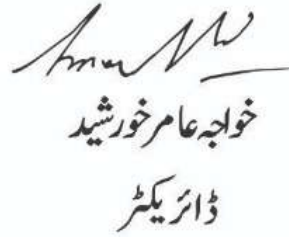 خواجہ عامر خورشید
ڈائریکٹر